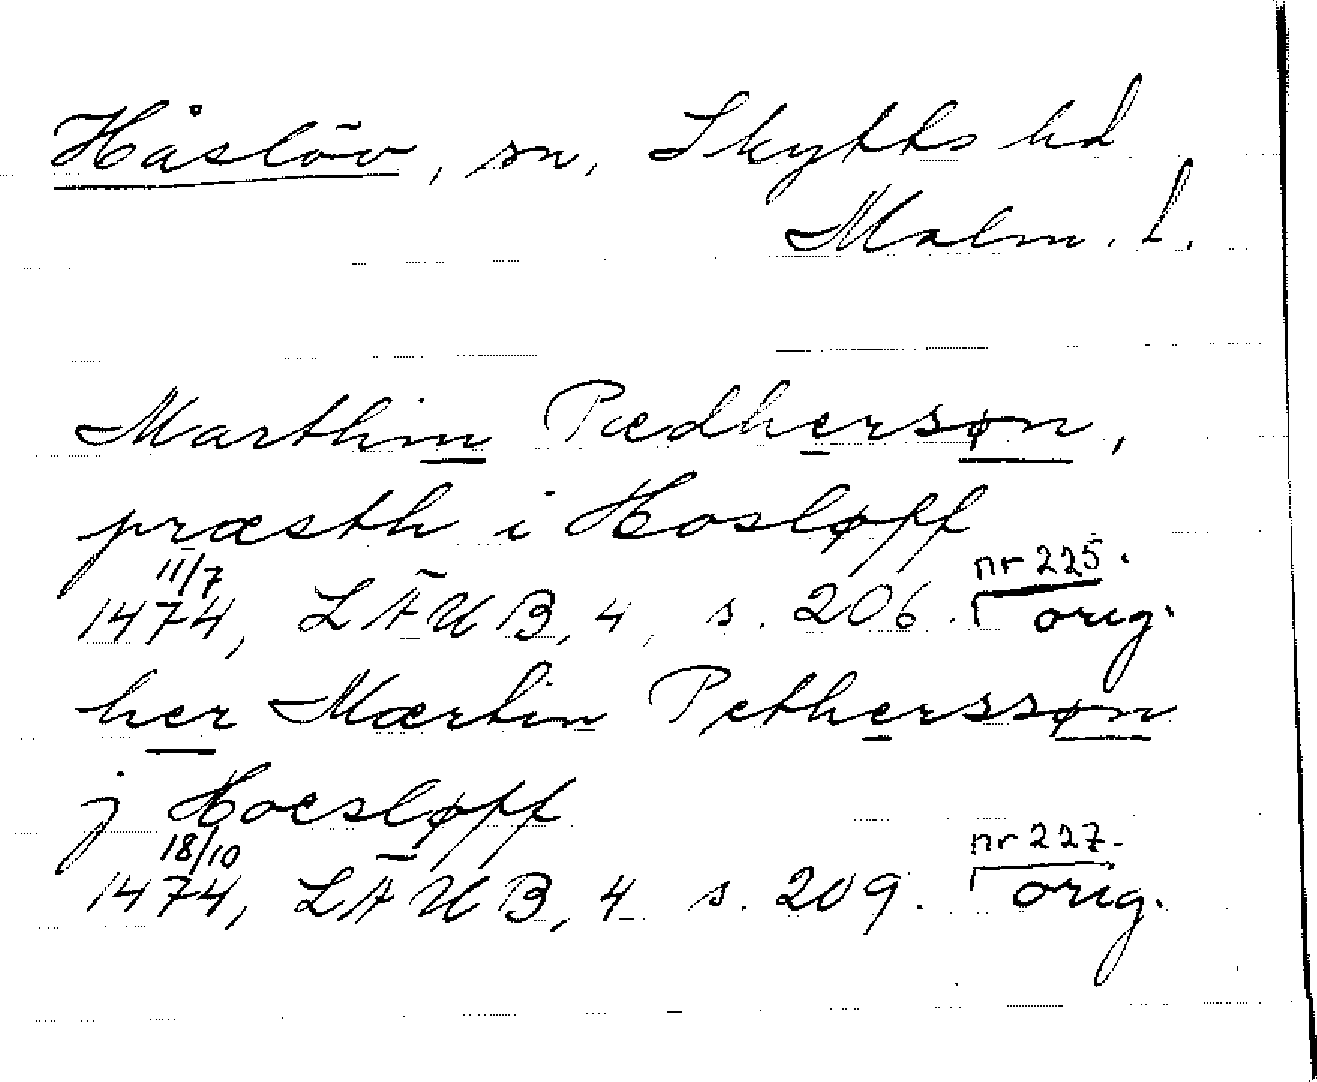 Håslöv, sn, Skytts hd
Malm. l.
Marthin Pædhersøn,
præsth i Hosløff
11/7 1474, LÄUB, 4, s. 206. nr 225. orig.
her Mærtin Petherssøn
j Hoesløff
18/10 1474, LÄUB, 4 s. 209. nr 227. orig.